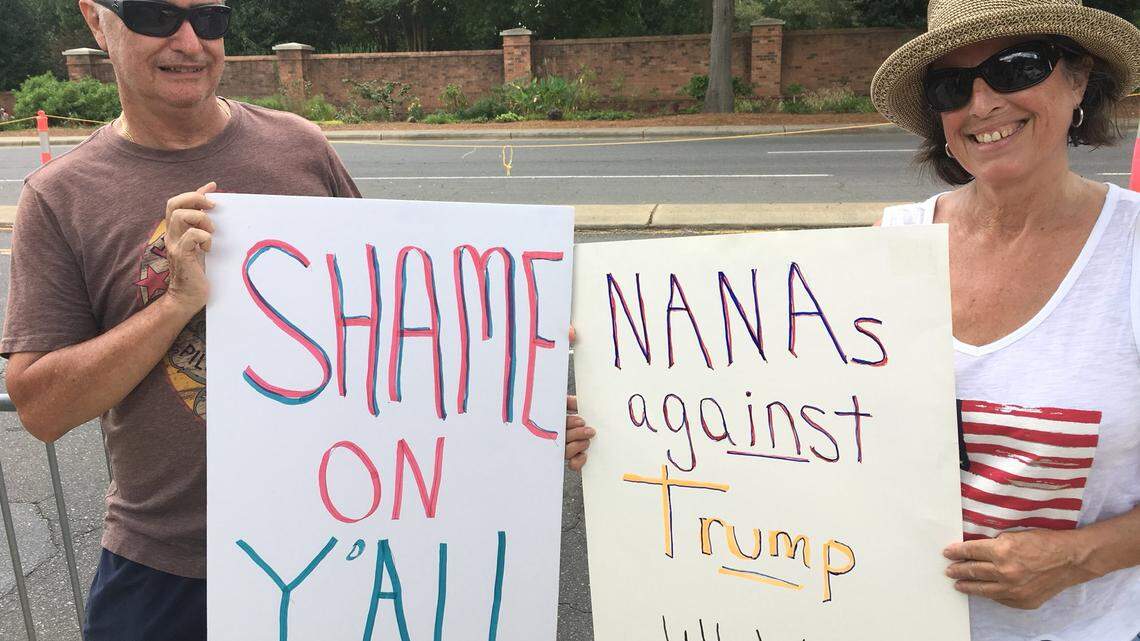 SHAME
ON
Y'ALL
NANAs
against
Trump